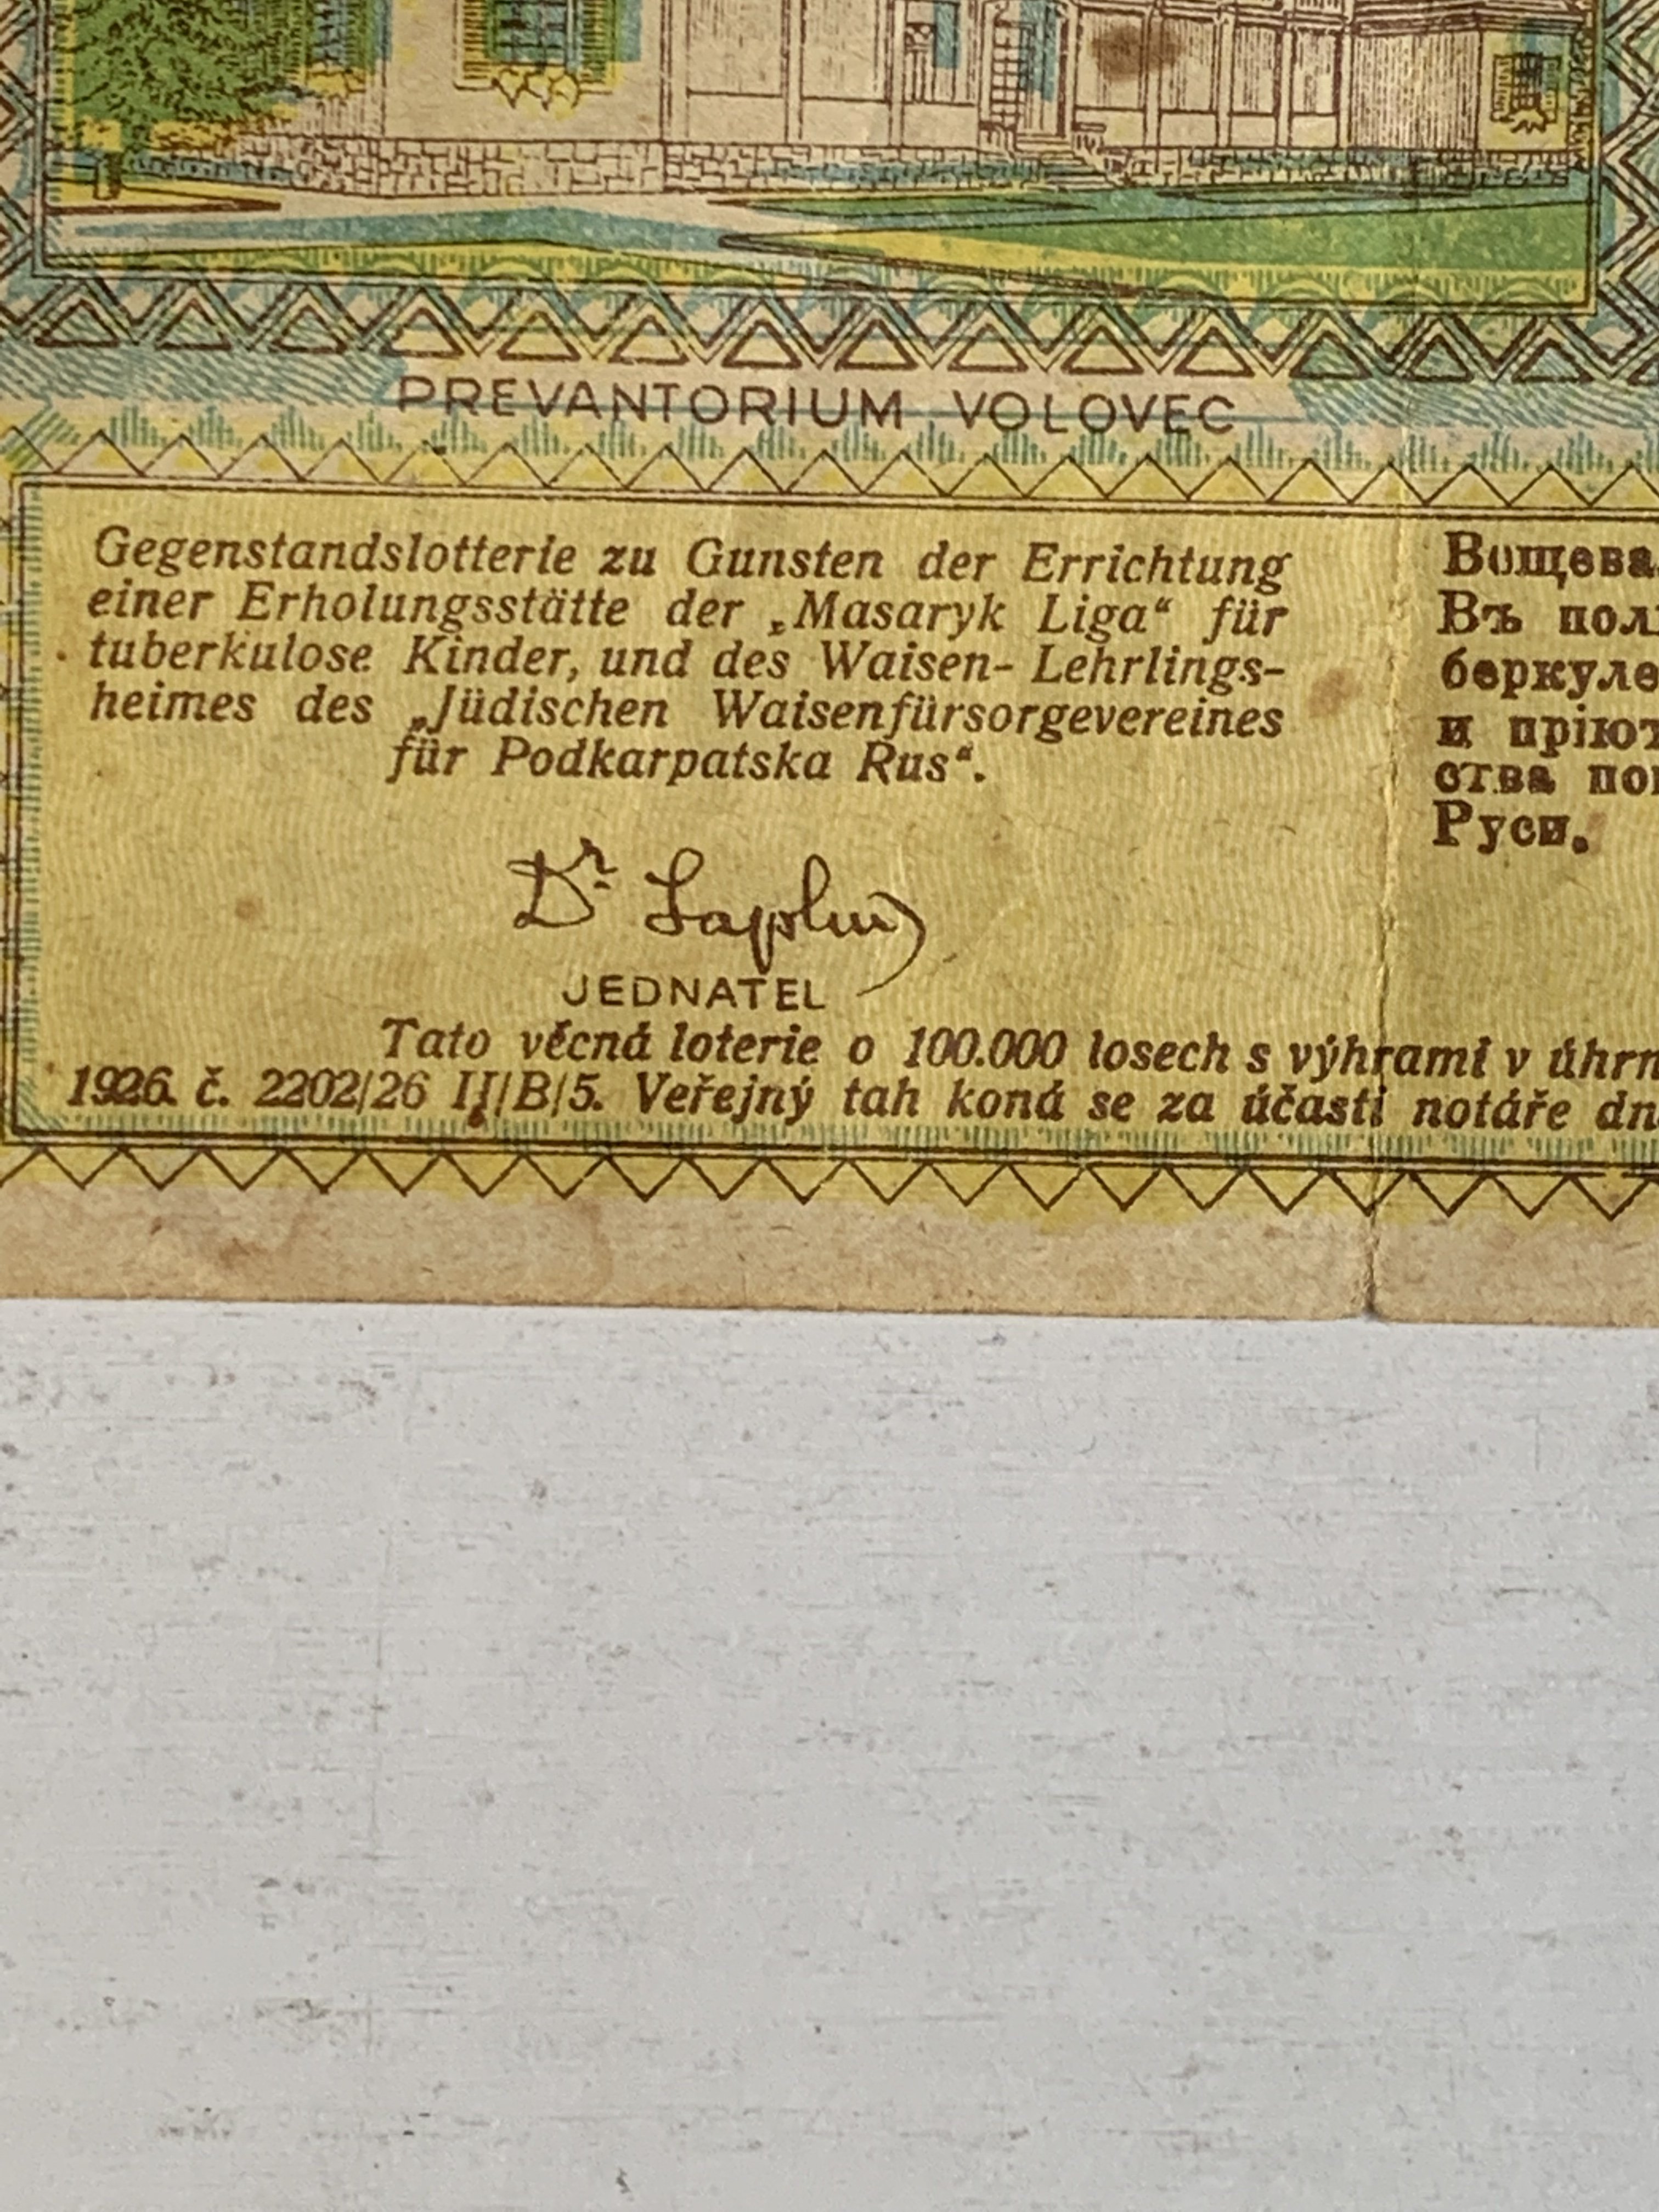 PREVANTORIUM VOLOVEC
Gegenstandslotterie zu Gunsten der Errichtung
einer Erholungsstätte der „Masaryk Liga“ für
tuberkulose Kinder, und des Waisen- Lehrlings-
heimes des „Jüdischen Waisenfürsorgevereines
für Podkarpatska Rus“.
Вещева
Въ пол
беркуле
и пріют
ства по
Руси.
Dr.
JEDNATEL
Tato věcná loterie o 100.000 losech s výhrami v úhrn
1926. č. 2202/26 II/B/5. Veřejný tah koná se za účasti notáře dn